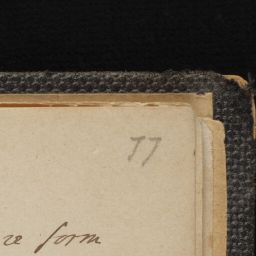 77
re form